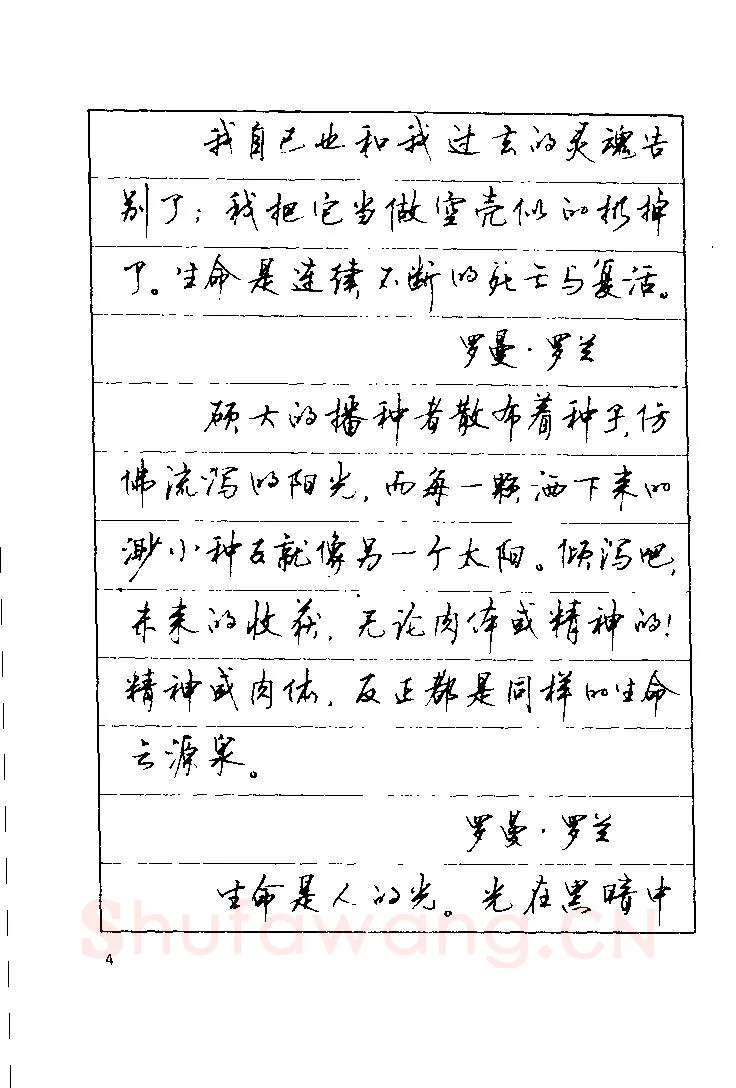 我自己也和我过去的灵魂告
别了；我把它当做空壳似的扔掉
了。生命是连续不断的死亡与复活。
罗曼·罗兰
硕大的播种者散布着种子，仿
佛流泻的阳光，而每一颗洒下来的
渺小种子就像另一个太阳。倾泻吧，
未来的收获，无论肉体或精神的！
精神或肉体，反正都是同样的生命
之源泉。
罗曼·罗兰
生命是人的光。光在黑暗中
Shufawang.CN
4